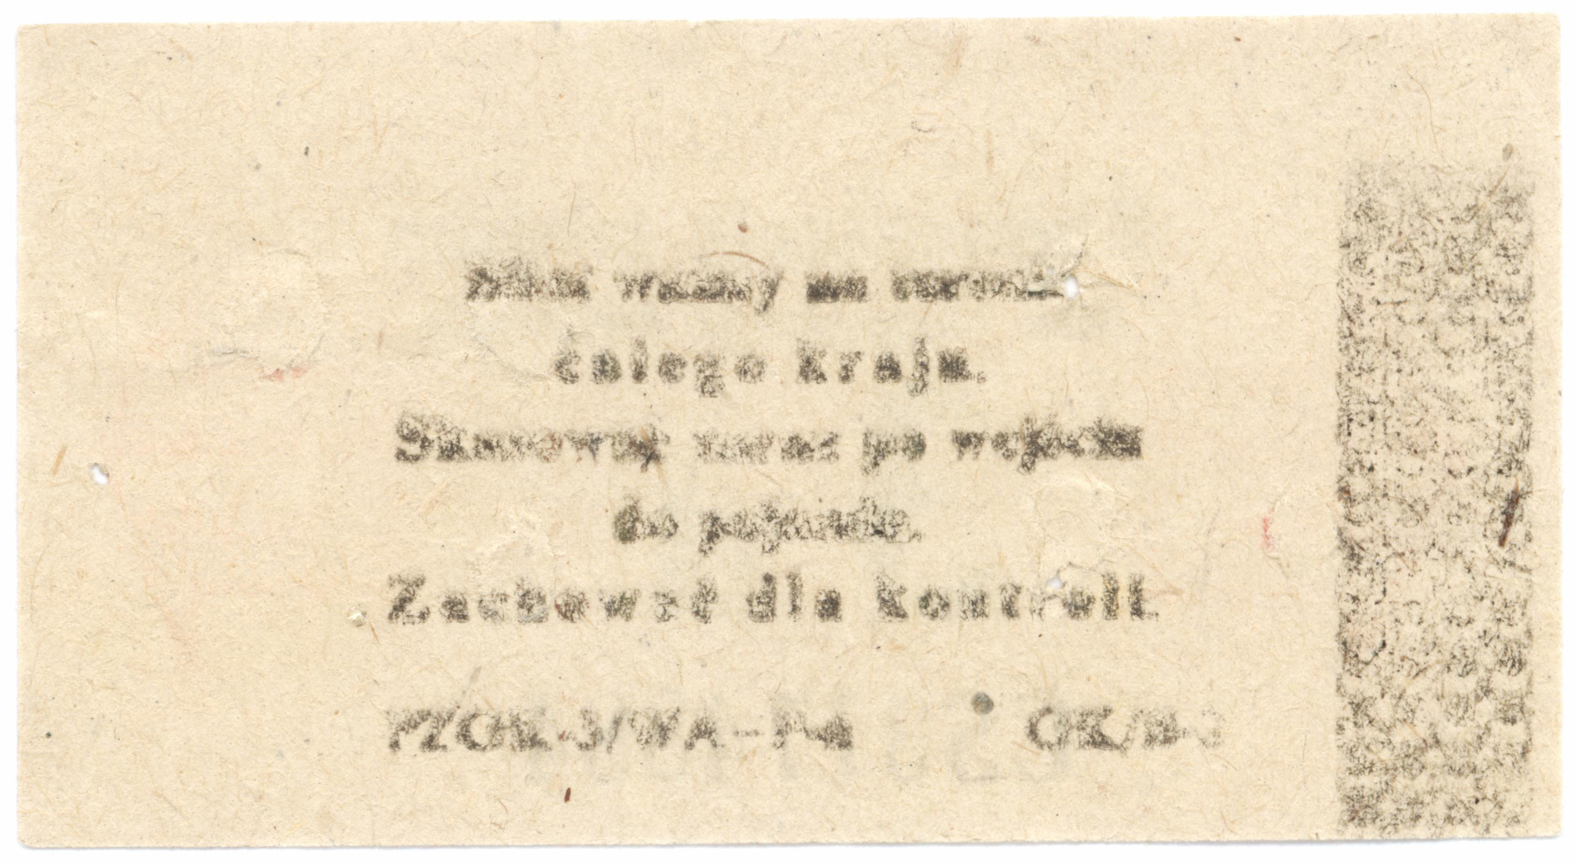 Bilet ważny na terenie
całego kraju.
Skasować zaraz po wejściu
do pojazdu.
Zachować dla kontroli.
PZGK-3/WA-